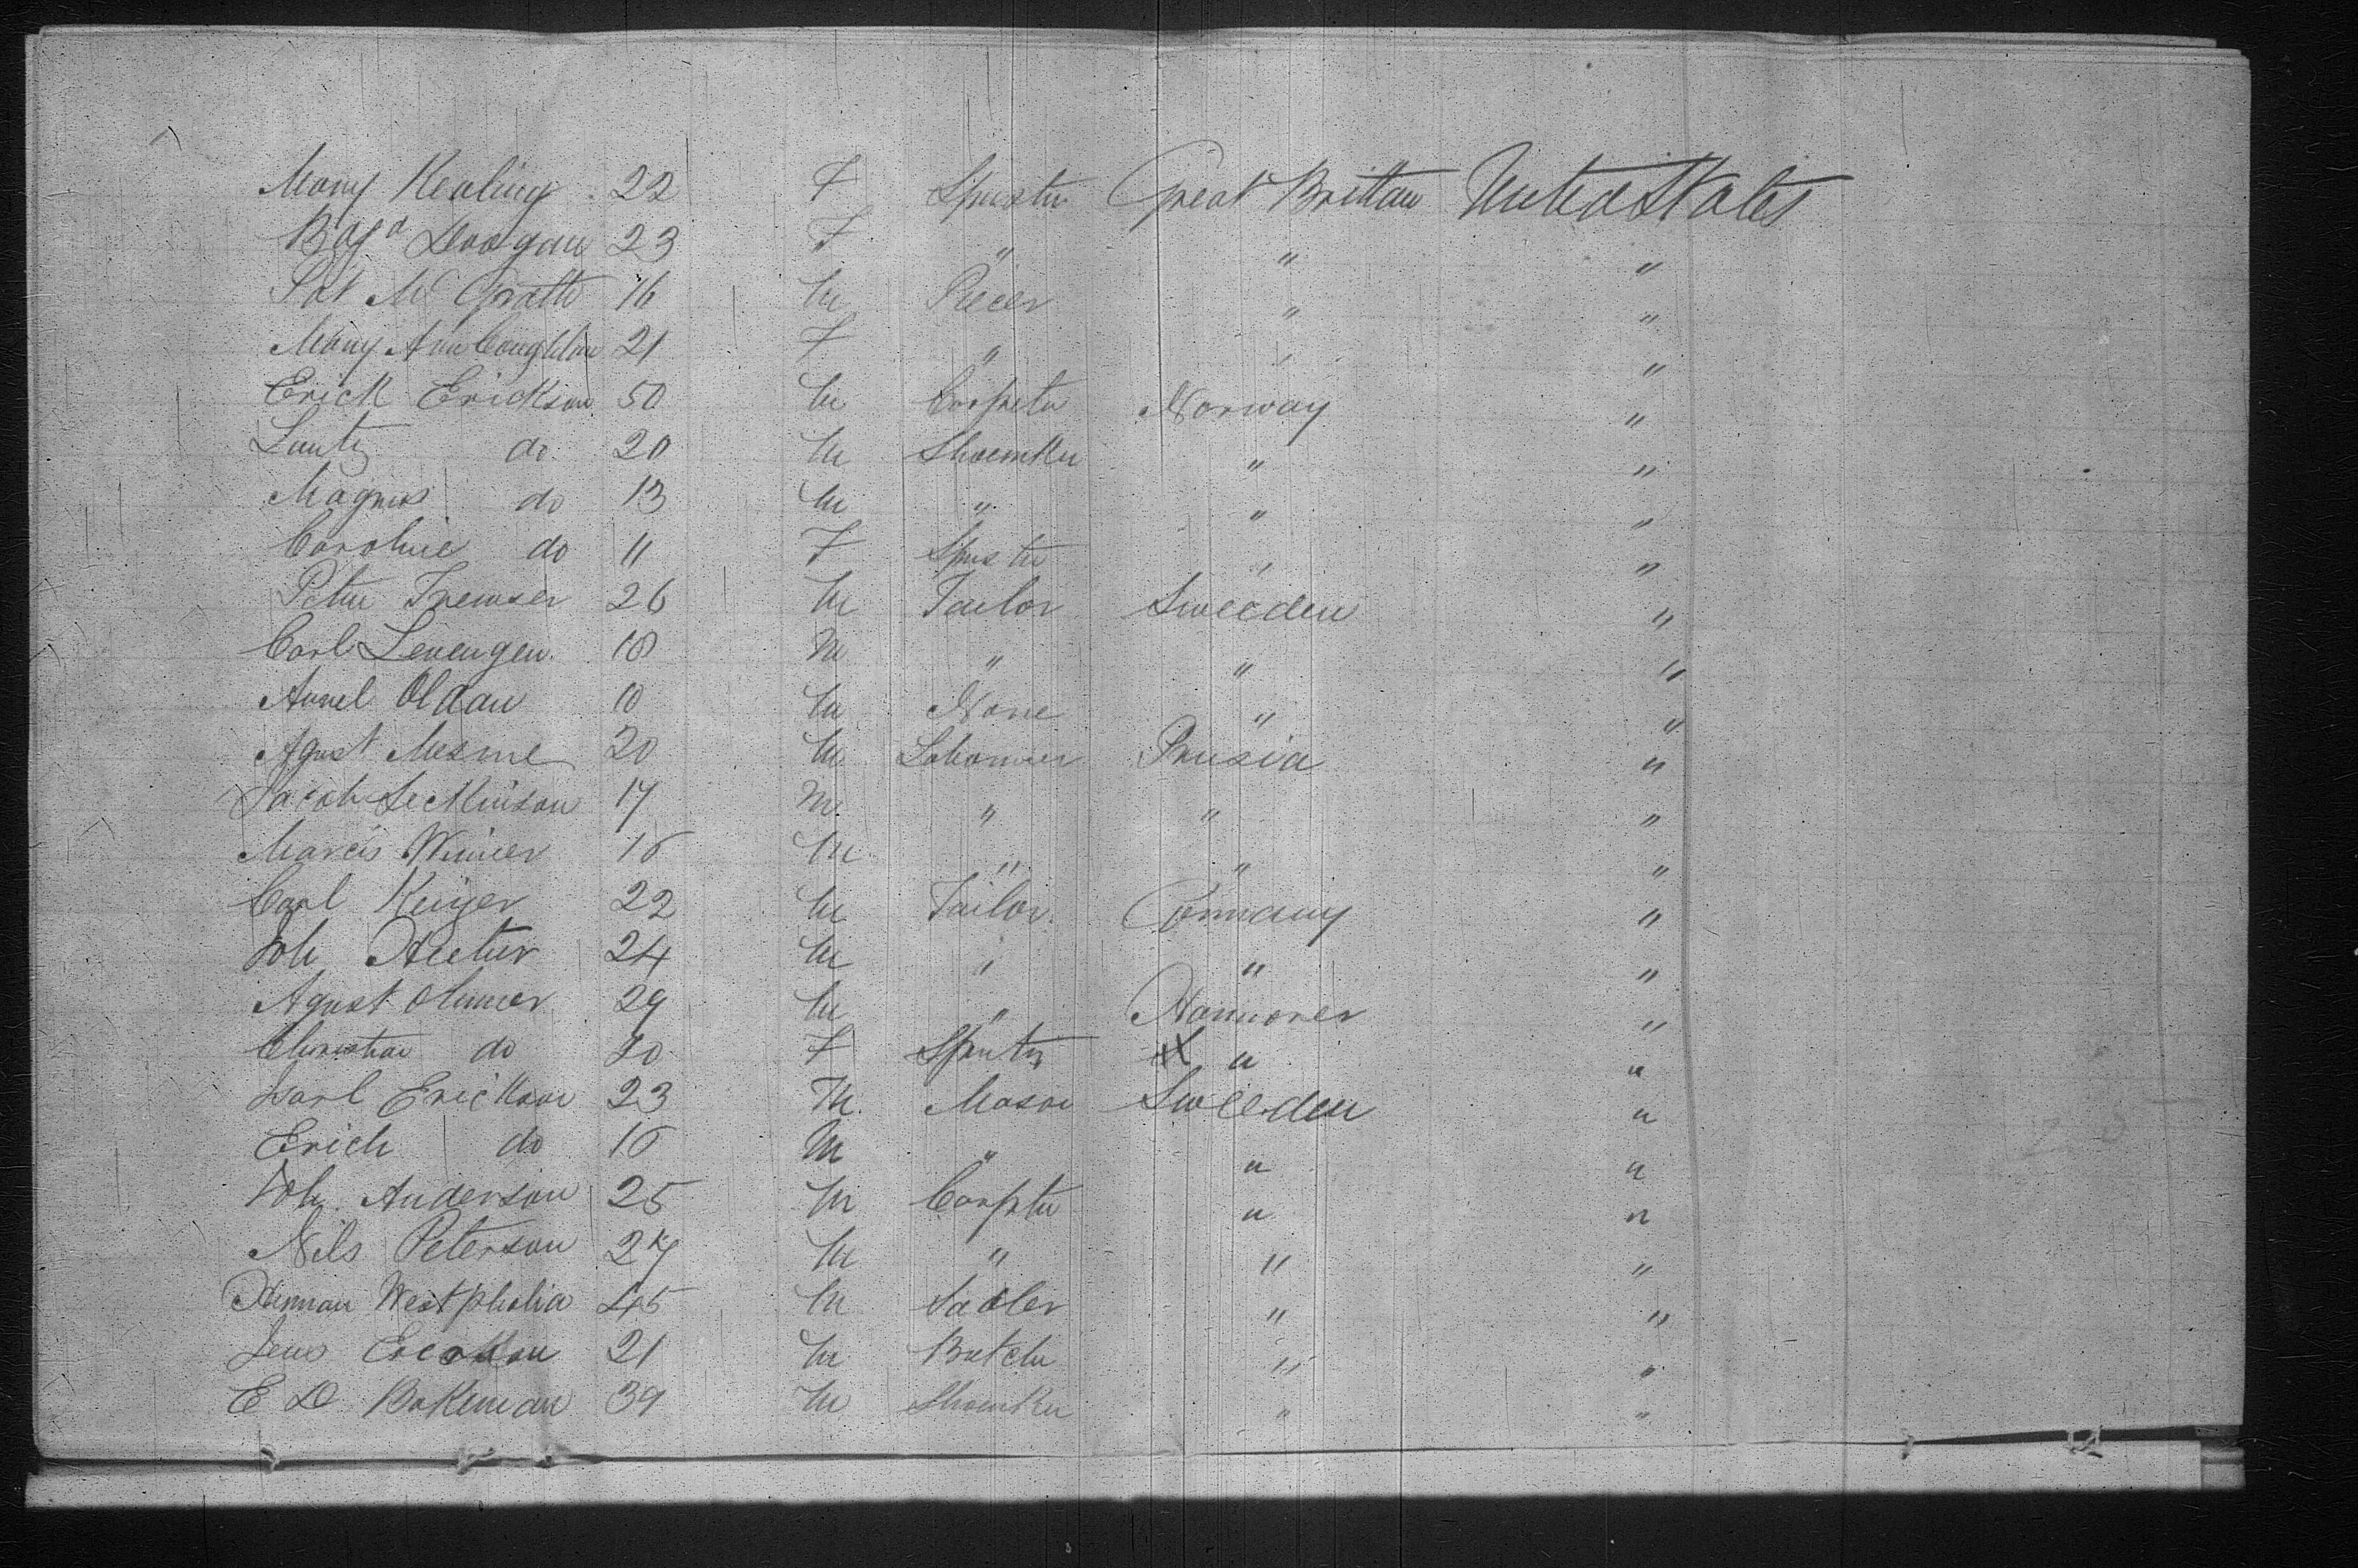 Mary Kealing 22 F Spinster Great Brittan United States
Bgd Doogan 23 F " " "
Pat Mc Grath 16 M Piecer " "
Mary Ann Coughlan 21 F " " "
Erick Erickson 50 M Carpetr Norway "
Lautz do 20 M Shoemkr " "
Magnus do 13 M " " "
Caroline do 11 F Spinstr " "
Peter 26 M Tailor Sweeden "
Carl Levengen 18 M " " "
Oldan 10 M None " "
Agust Mesme 20 M Labourer Prusia "
Jacob 17 M " " "
Marcis Winier 16 M " " "
Carl 22 M Tailor Germany "
Joh 24 M " " "
Agust 29 M " Hannover "
Christian do F " "
Karl Erickson 23 M Mason Sweeden "
Erich do 16 M " " "
Joh. Anderson 25 M Carptr " "
Nils Peterson 27 M " " "
Herman Westphalia 45 M Sadler " "
Jens 21 M Butchr " "
E D Bakeman 39 M Shoemkr " "